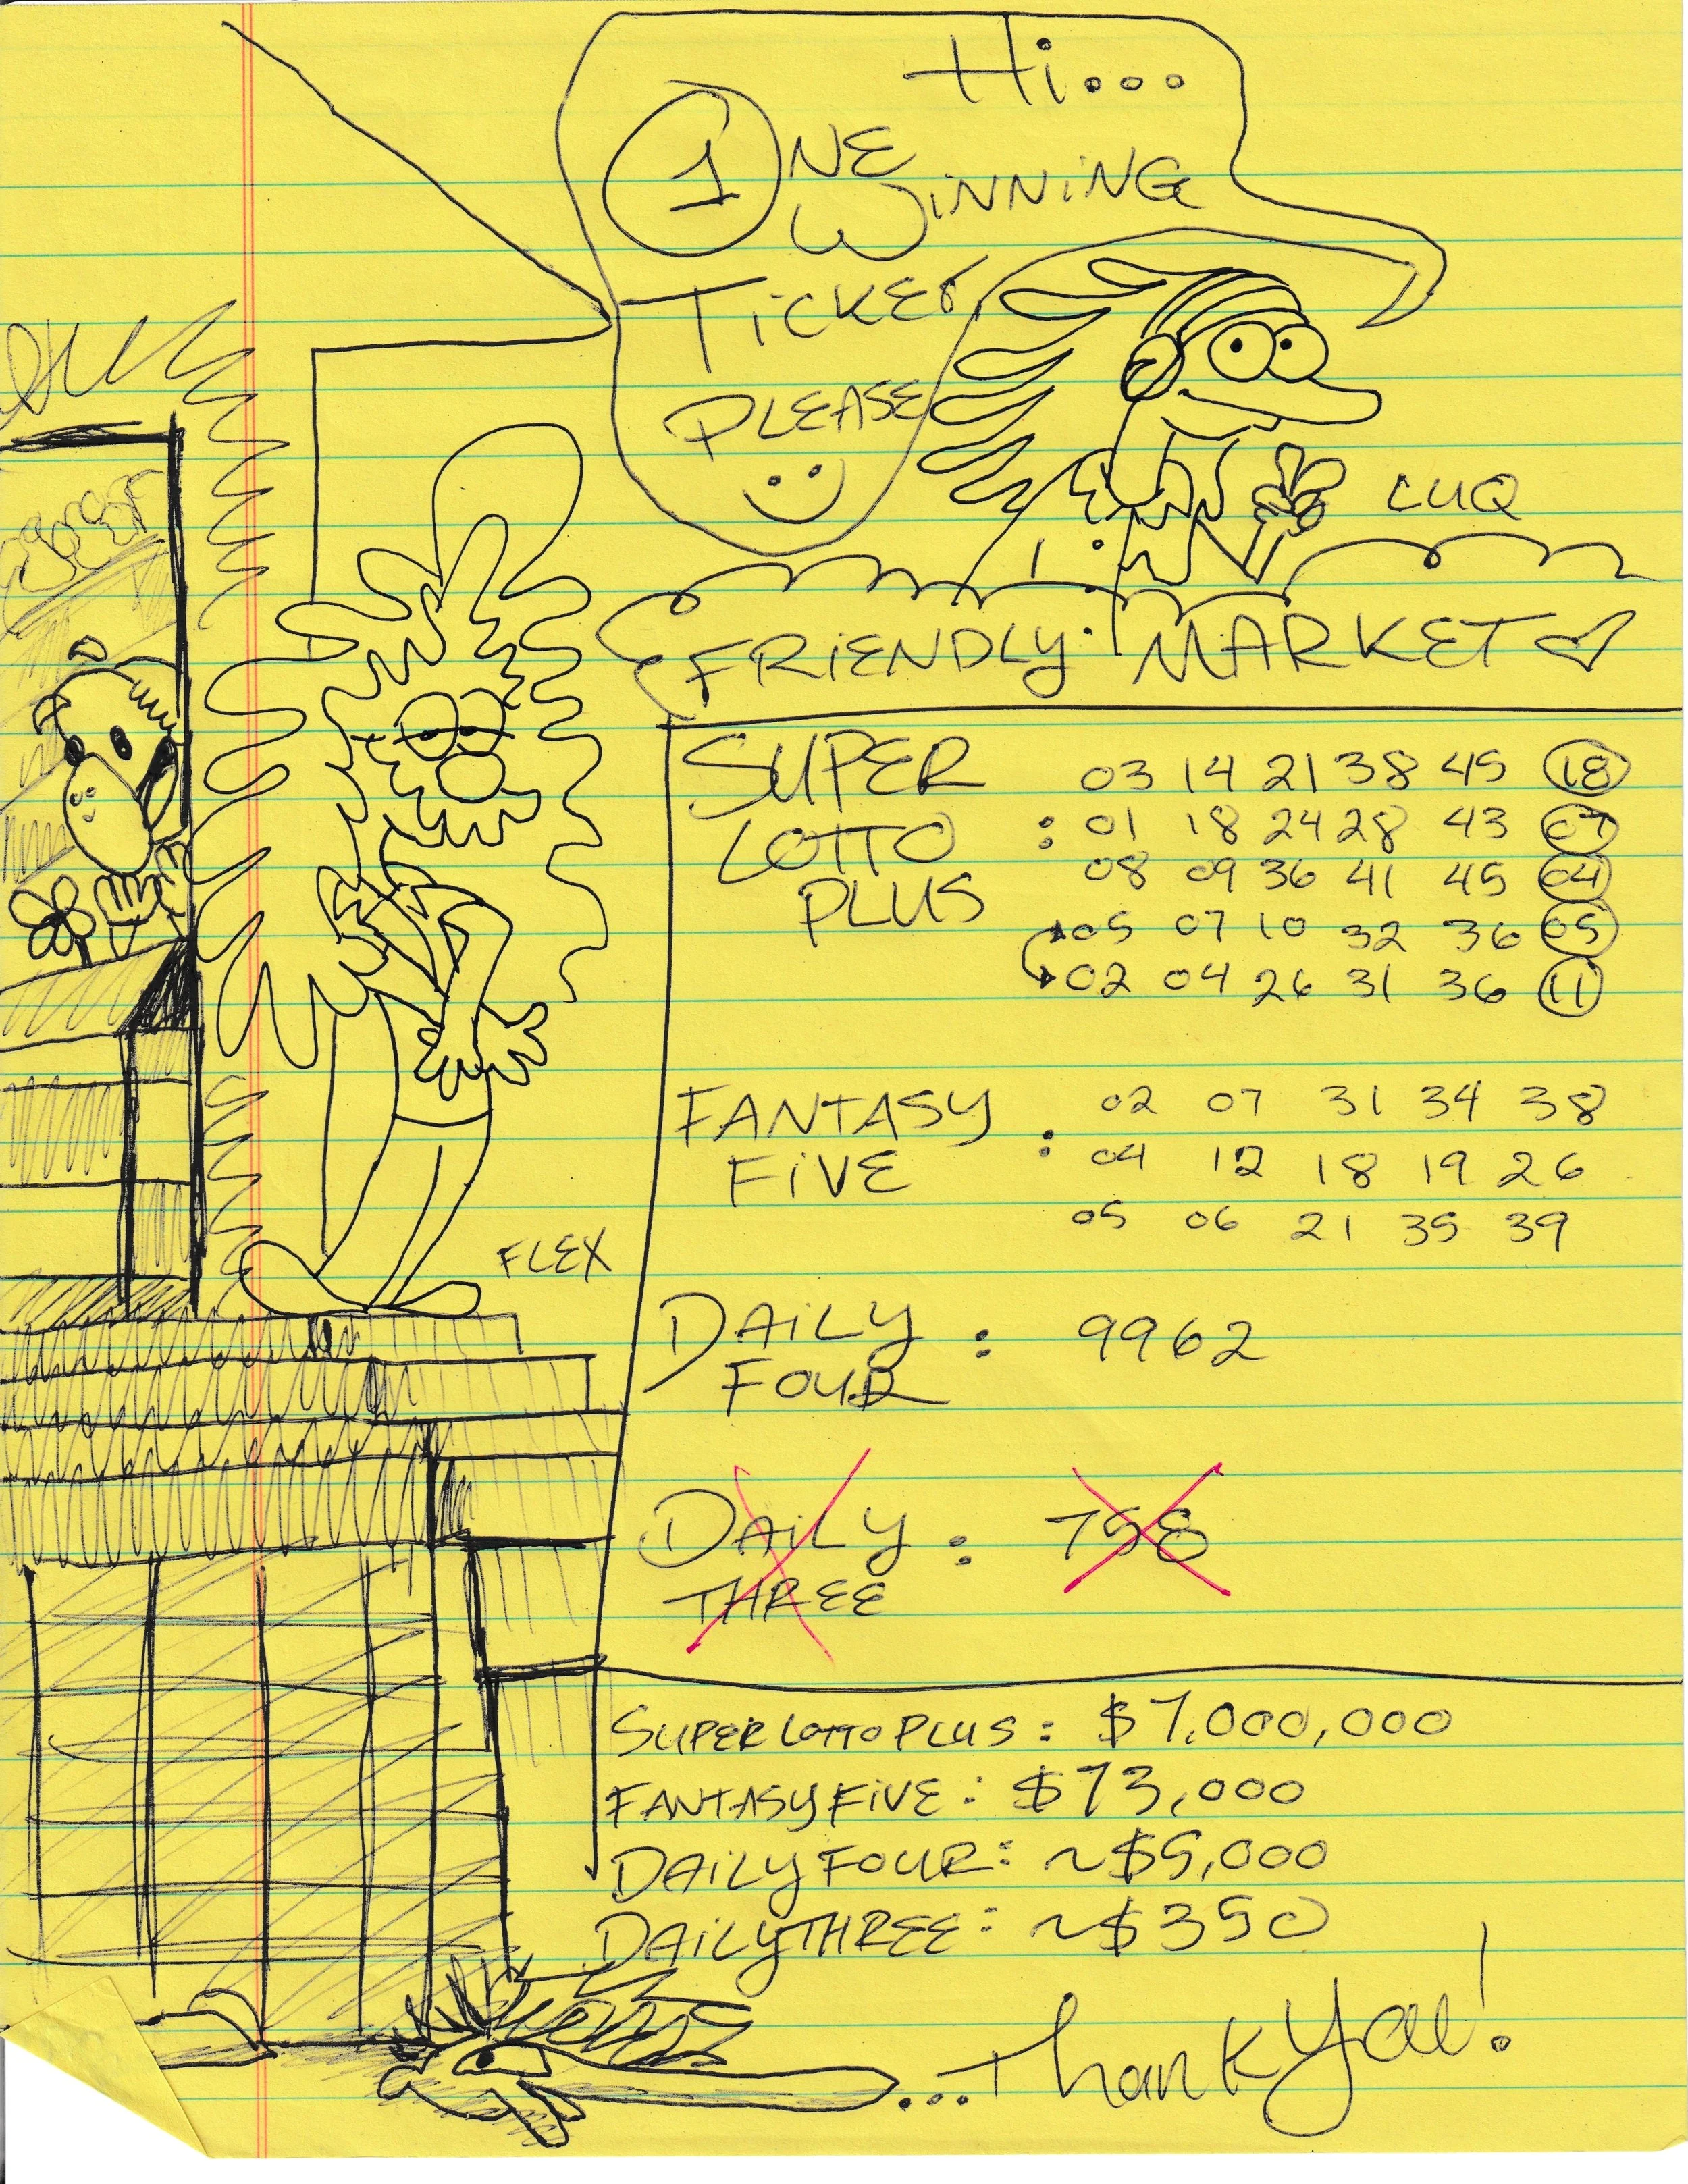 Hi...
1NE
WINNING
TICKET
PLEASE
CUQ
FRIENDLY MARKET
SUPER
LOTTO :
PLUS
03 14 21 38 45 18
01 18 24 28 43 07
08 09 36 41 45 04
05 07 10 32 36 05
02 04 26 31 36 11
FANTASY
FIVE :
02 07 31 34 38
04 12 18 19 26
05 06 21 35 39
FLEX
DAILY : 9962
FOUR
DAILY : 758
THREE
SUPER LOTTO PLUS: $7,000,000
FANTASY FIVE: $73,000
DAILY FOUR: ~$5,000
DAILY THREE: ~$350
...Thank You!